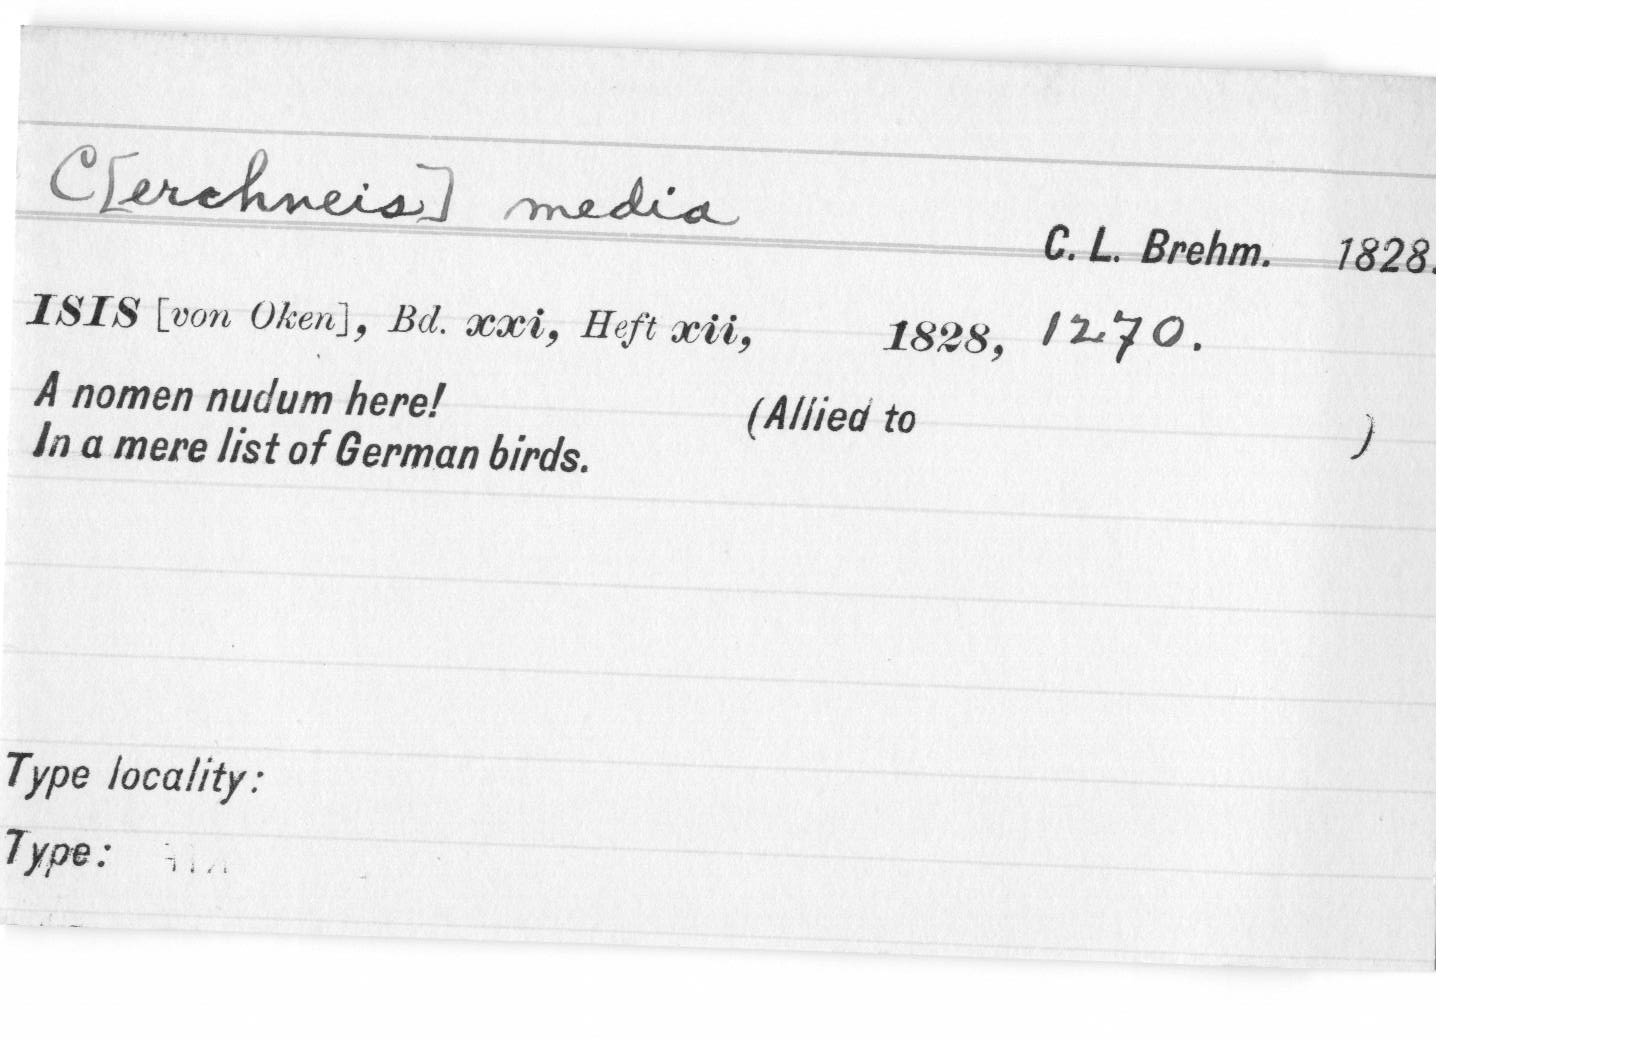 C[erchneis] media
C. L. Brehm. 1828.
ISIS [von Oken], Bd. xxi, Heft xii, 1828, 1270.
A nomen nudum here! (Allied to )
In a mere list of German birds.
Type locality:
Type: